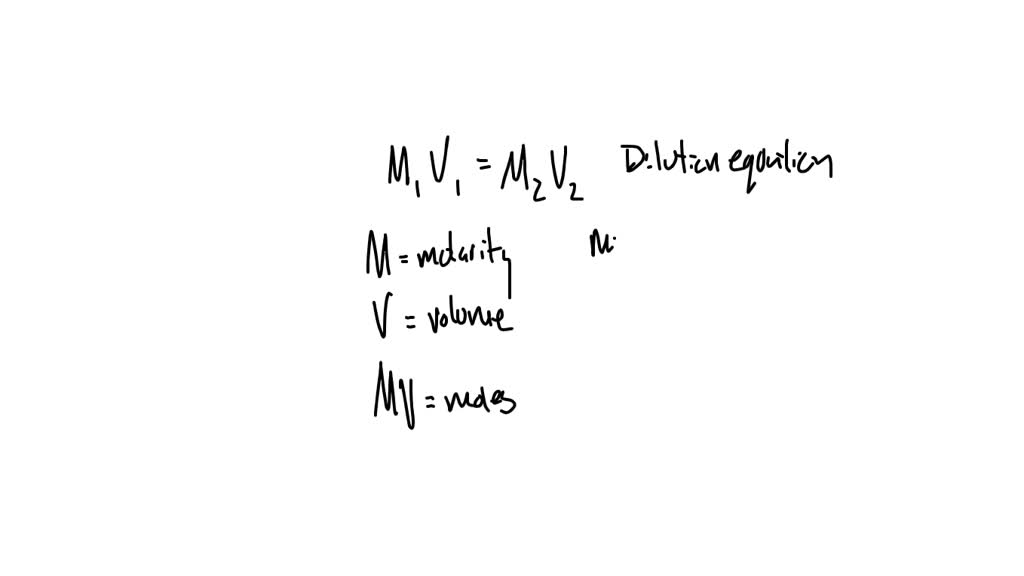 M₁V₁ = M₂V₂ Dilution equation
M = molarity M:
V = volume
MV = moles